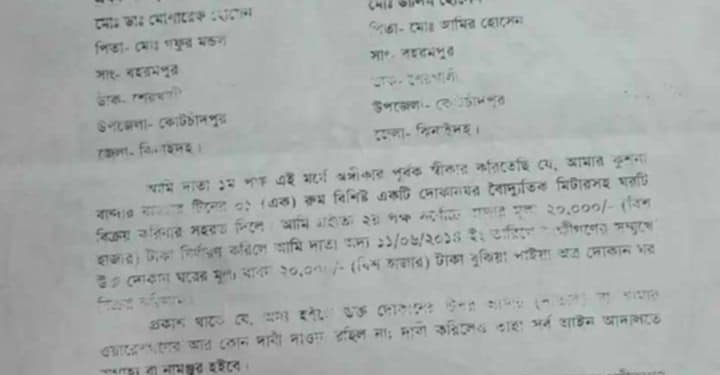 মোঃ ডাঃ মোশারেফ হোসেন
পিতা- মোঃ গফুর মন্ডল
সাং- বহরমপুর
ডাক-
উপজেলা- কোটচাঁদপুর
জেলা- ঝিনাইদহ।
পিতা- মোঃ আমির হোসেন
সাং- বহরমপুর
ডাক-
উপজেলা- কোটচাঁদপুর
জেলা- ঝিনাইদহ।
আমি দাতা ১ম পক্ষ এই মর্মে অঙ্গীকার পূর্বক স্বীকার করিতেছি যে, আমার কুশনা
বাজার টিনের ০১ (এক) রুম বিশিষ্ট একটি দোকানঘর বৈদ্যুতিক মিটারসহ ঘরটি
বিক্রয় করিবার দিলে। আমি গ্রহীতা ২য় পক্ষ মূল্য ২০,০০০/- (বিশ
হাজার) টাকা নির্ধারণ করিলে আমি দাতা অদ্য ইং তারিখে সম্মুখে
উক্ত দোকান ঘরের মূল্য বাবদ ২০,০০০/- (বিশ হাজার) টাকা বুঝিয়া পাইয়া অত্র দোকান ঘর
প্রকাশ থাকে যে, অদ্য হইতে উক্ত দোকানের উপর আমার বা আমার
ওয়ারেশগণের আর কোন দাবী দাওয়া রহিল না। দাবী করিলেও তাহা সর্ব আইন আদালতে
বা নামঞ্জুর হইবে।